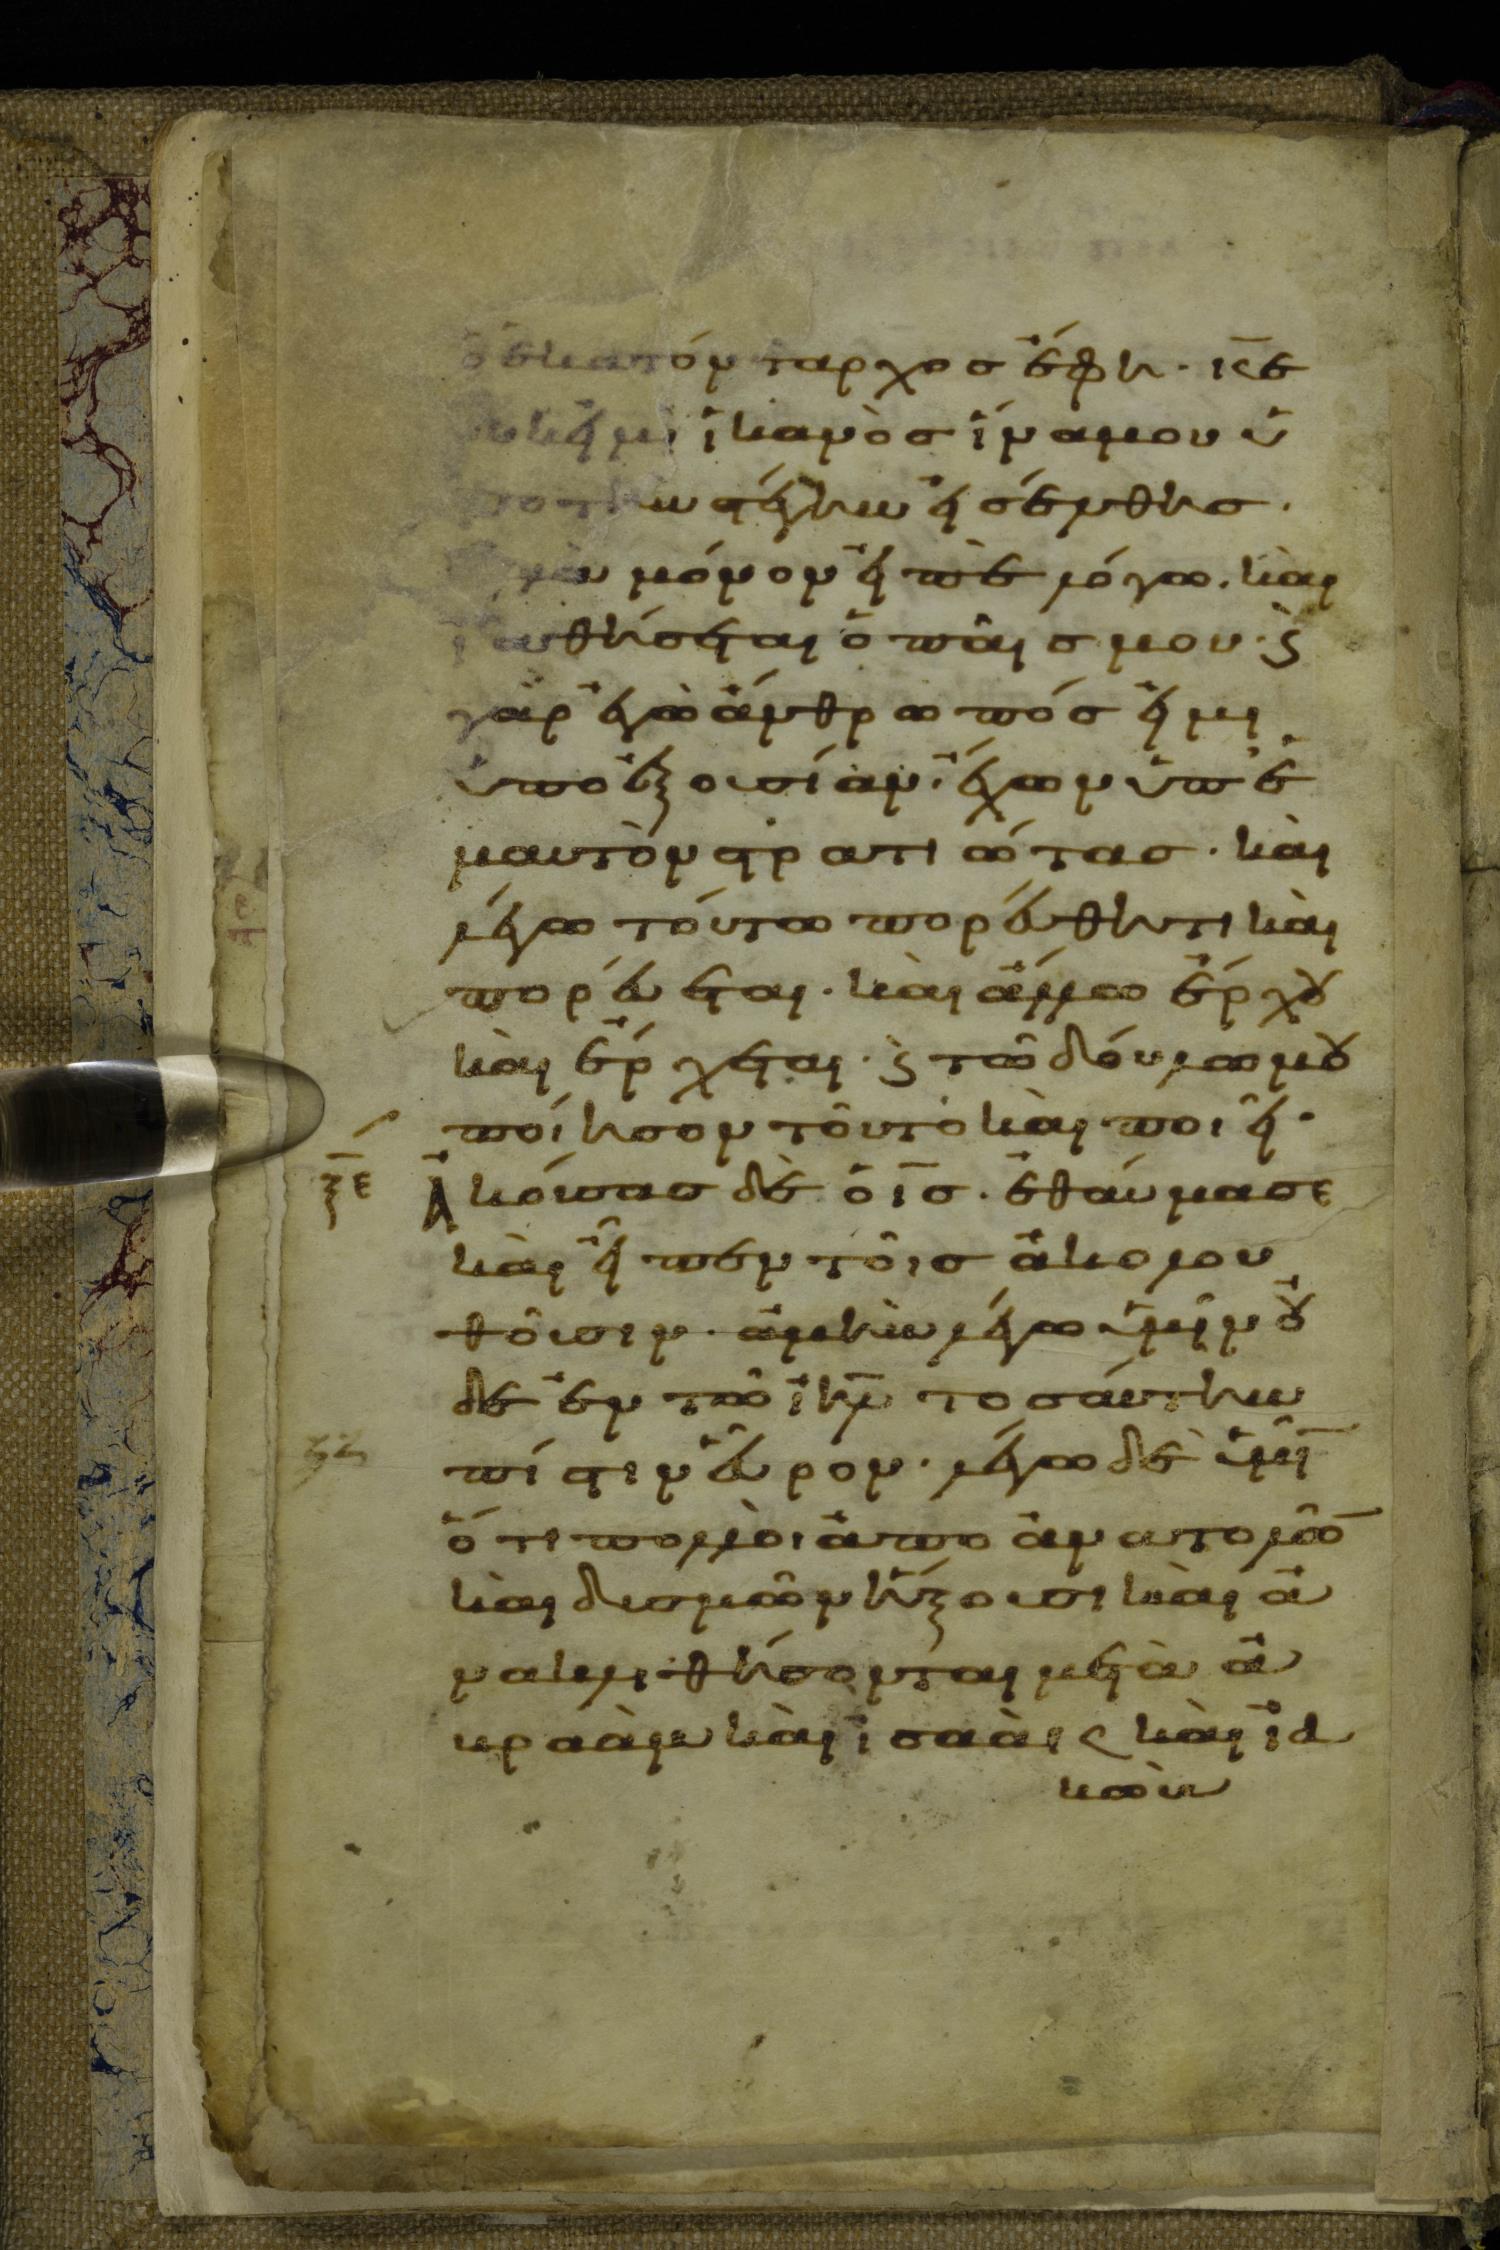 ὁ ἑκατόνταρχος ἔφη· κ̅ε̅
οὐκ εἰμὶ ἱκανὸς ἵνα μου ὑ
πὸ τὴν στέγην εἰσέλθης·
ἀλλὰ μόνον εἰπὲ λόγω, καὶ
ἰαθήσεται ὁ παῖς μου· ϗ
γὰρ ἐγὼ ἄνθρωπός εἰμι
ὑπὸ ἐξουσίαν· ἔχων ὑπ' ἐ
μαυτὸν στρατιώτας· καὶ
λέγω τούτω πορεύθητι καὶ
πορεύεται· καὶ ἄλλω ἔρχου
καὶ ἔρχεται· ϗ τῶ δούλω μου
ποίησον τοῦτο καὶ ποιεῖ·
ξ̅ε̅ Ἀκούσας δὲ ὁ ι̅ς̅· ἐθαύμασε
καὶ εἶπεν τοῖς ἀκολου
θοῦσιν· ἀμὴν λέγω ὑμῖν οὐ
δὲ ἐν τῶ ι̅η̅λ̅ τοσαύτην
πίστιν εὗρον· λέγω δὲ ὑμῖ̅
ὅτι πολλοὶ ἀπὸ ἀνατολῶ̅
καὶ δυσμῶν ἥξουσι καὶ ἀ
νακλιθήσονται μετὰ ἀ
βραὰμ καὶ ἰσαὰκ καὶ ἰα
κὼβ